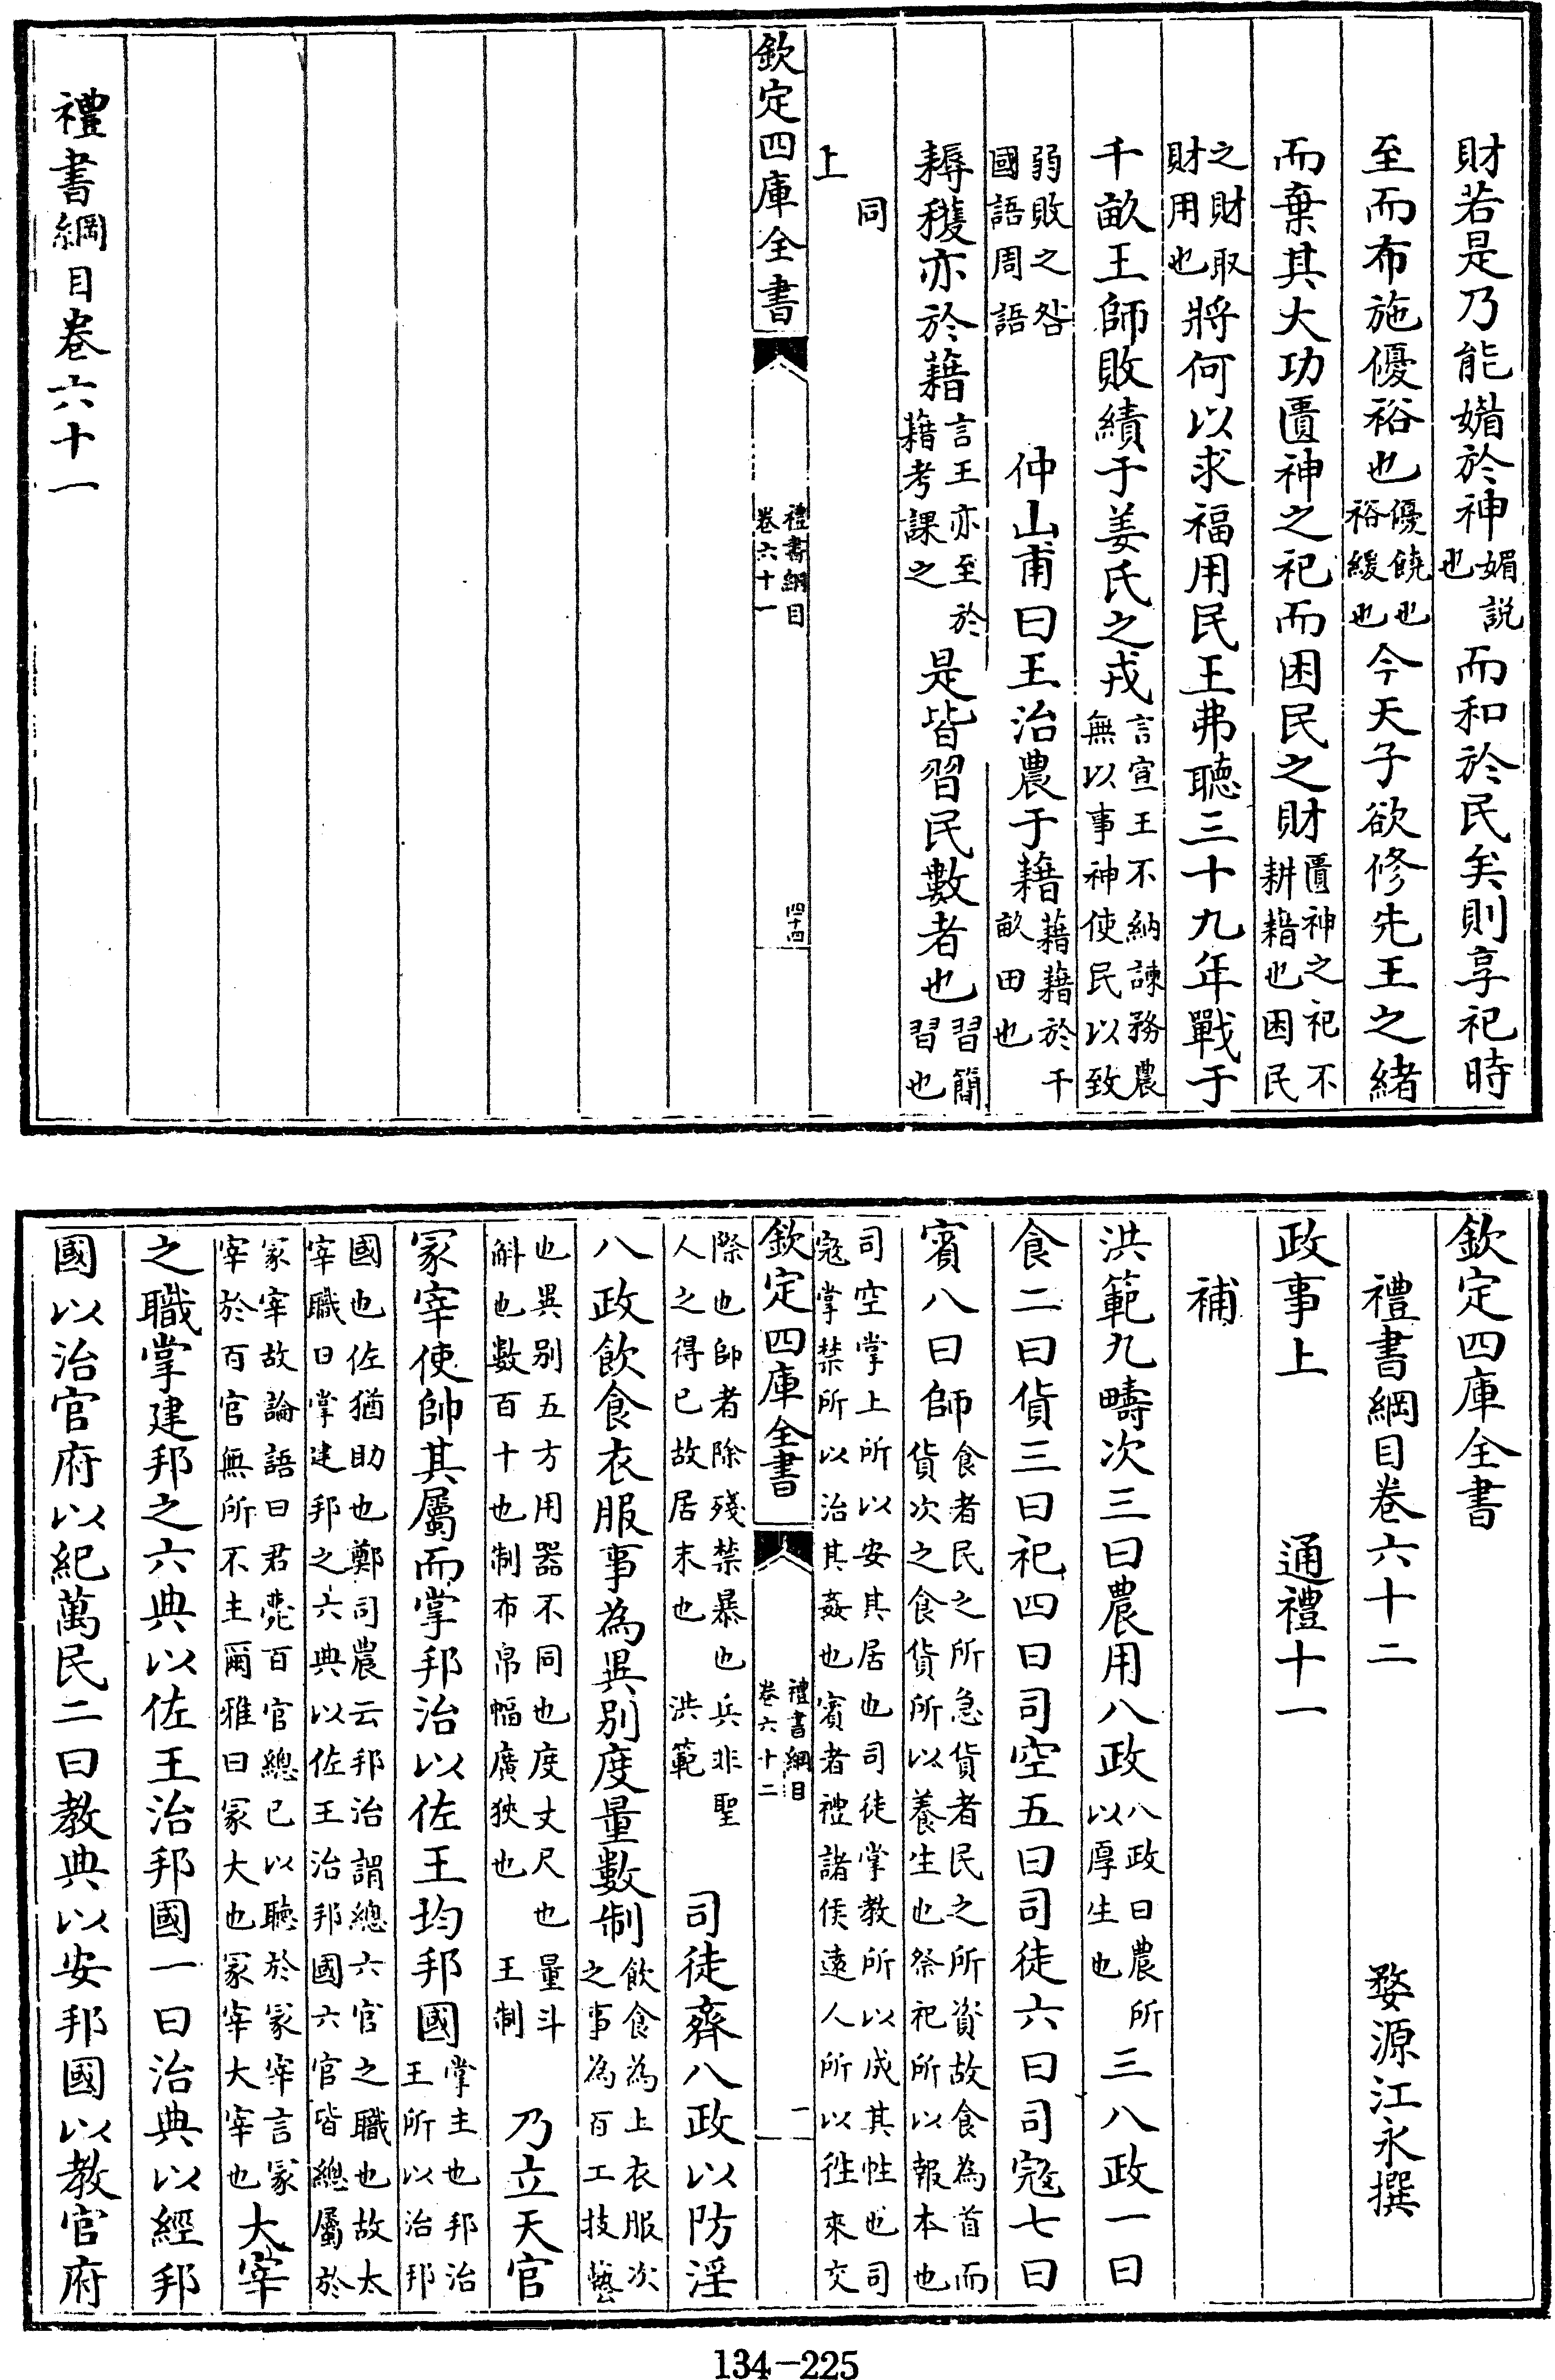 財若是乃能媚於神媚說也而和於民矣則享祀時
至而布施優裕也優饒也裕緩也今天子欲修先王之緒
而棄其大功匱神之祀而困民之財匱神之祀不耕藉也困民
之財取財用也將何以求福用民王弗聽三十九年戰于
千畝王師敗績于姜氏之戎言宣王不納諫務農無以事神使民以致
弱敗之咎國語周語　仲山甫曰王治農于藉藉藉於千畝田也
耨穫亦於藉言王亦至於藉考課之是皆習民數者也習簡習也
同上
欽定四庫全書　禮書綱目卷六十一　四十四
禮書綱目卷六十一
欽定四庫全書
禮書綱目卷六十二　婺源江永撰
政事上　通禮十一
補
洪範九疇次三曰農用八政八政曰農所以厚生也三八政一曰
食二曰貨三曰祀四曰司空五曰司徒六曰司寇七曰
賓八曰師食者民之所急貨者民之所資故食為首而貨次之食貨所以養生也祭祀所以報本也
司空掌上所以安其居也司徒掌教所以成其性也司寇掌禁所以治其姦也賓者禮諸侯遠人所以徃來交
欽定四庫全書　禮書綱目卷六十二　一
際也師者除殘禁暴也兵非聖人之得已故居末也　洪範　司徒齊八政以防淫
八政飲食衣服事為異別度量數制飲食為上衣服次之事為百工技藝
也異別五方用器不同也度丈尺也量斗斛也數百十也制布帛幅廣狹也　王制　乃立天官
冢宰使帥其屬而掌邦治以佐王均邦國掌主也邦治王所以治邦
國也佐猶助也鄭司農云邦治謂總六官之職也故太宰職曰掌建邦之六典以佐王治邦國六官皆總屬於
冢宰故論語曰君薨百官總已以聽於冢宰言冢宰於百官無所不主爾雅曰冢大也冢宰大宰也大宰
之職掌建邦之六典以佐王治邦國一曰治典以經邦
國以治官府以紀萬民二曰教典以安邦國以教官府
134-225